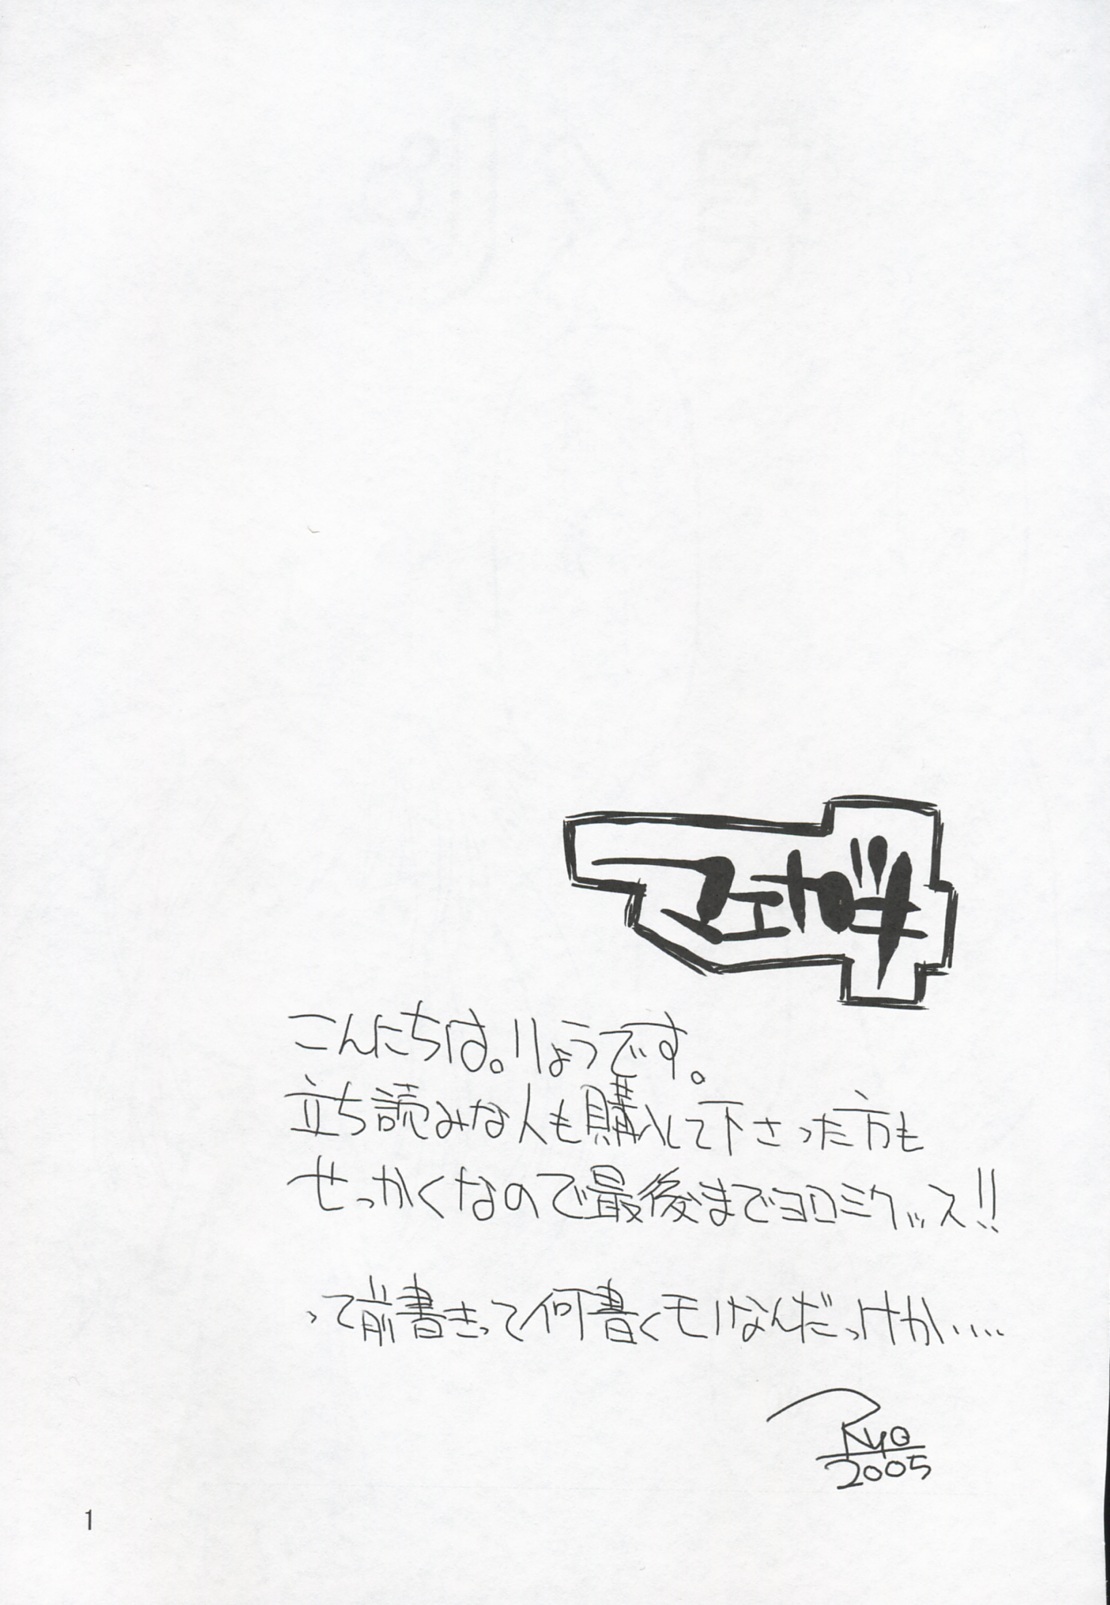 マエガキ
こんにちは。りょうです。
立ち読みな人も購入して下さった方も
せっかくなので最後までヨロミクッス!!
って前書きって何書くモノなんだっけか‥‥
Ryo
2005
1